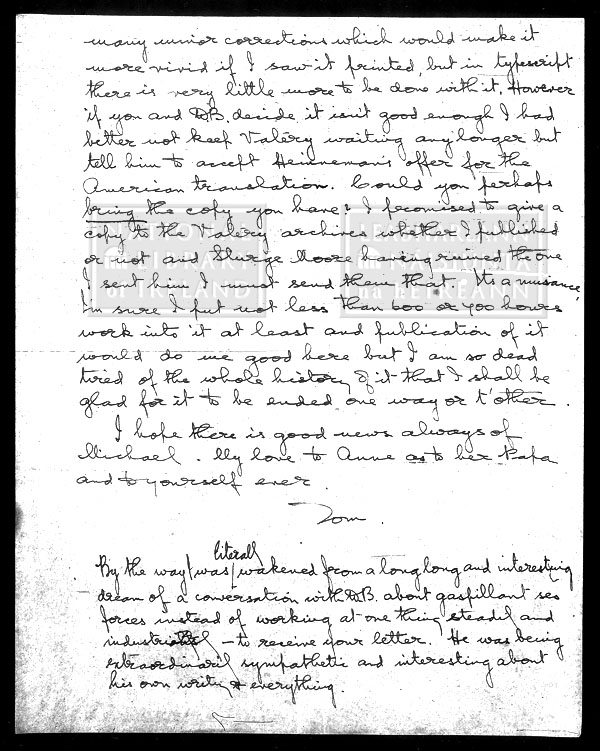 many minor corrections which would make it
more vivid if I saw it printed, but in typescript
there is very little more to be done with it. However
if you and WB. decide it isn't good enough I had
better not keep Valéry waiting any longer but
tell him to accept Heinneman's offer for the
American translation. Could you perhaps
bring the copy you have: I promised to give a
copy to the Valéry archives whether I published
or not and Sturge Moore having ruined the one
I sent him I must send them that. It's a nuisance,
I'm sure I put not less than 600 or 700 hours
work into it at least and publication of it
would do me good here but I am so dead
tired of the whole history of it that I shall be
glad for it to be ended one way or t'other.
I hope there is good news always of
Michael. My love to Anne as to her Papa
and to yourself ever.
Tom.
literally
By the way I was wakened from a long long and interesting
dream of a conversation with WB. about gaspillant ses
forces instead of working at one thing steadily and
industriously – to receive your letter. He was being
extraordinarily sympathetic and interesting about
his own writing & everything.
NATIONAL
LIBRARY
of IRELAND
LEABHARLANN
NÁISIÚNTA
na hÉIREANN